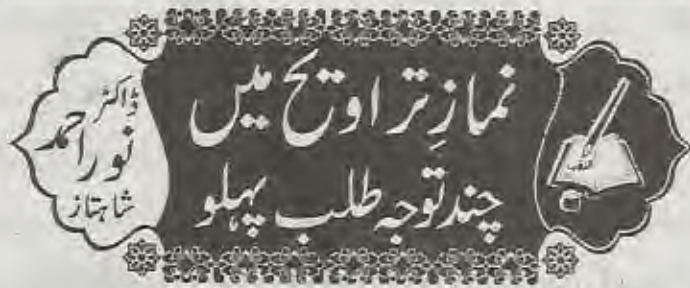 نمازِ تراویح میں
چند توجہ طلب پہلو
ڈاکٹر
نور احمد
شاہتاز